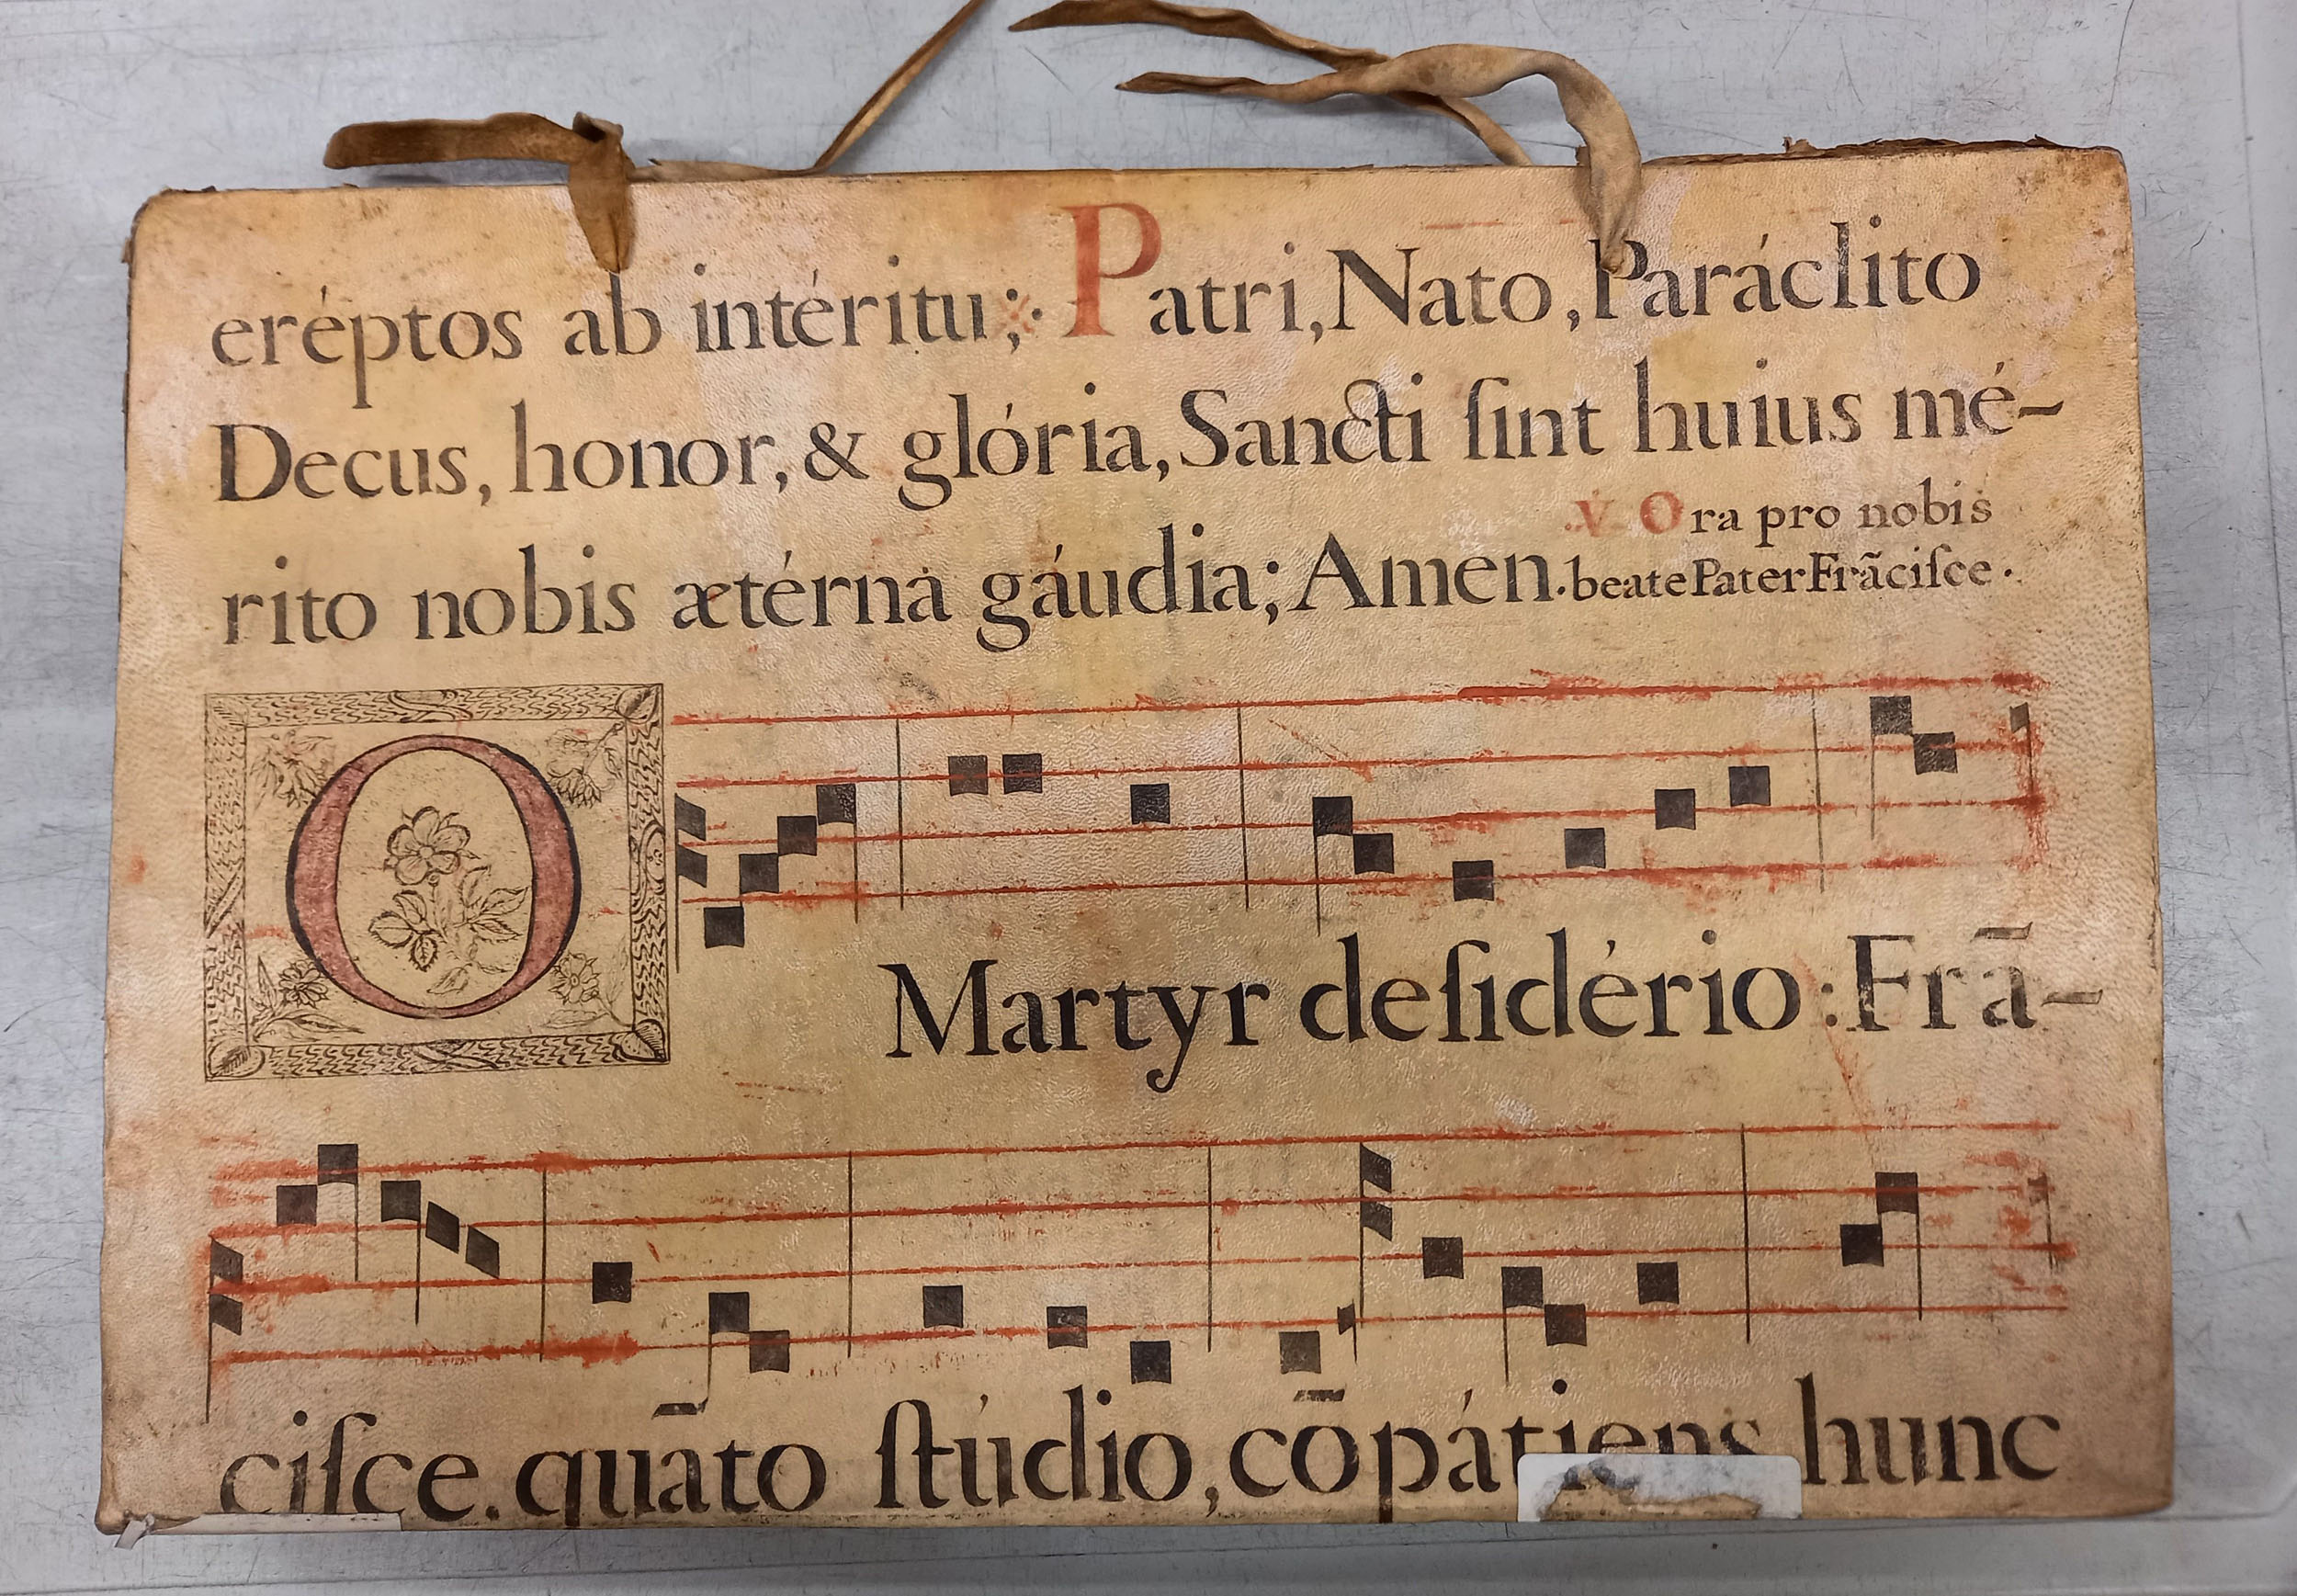 eréptos ab intéritu; Patri, Nato, Paráclito
Decus, honor, & glória, Sancti ſint huius mé-
rito nobis ætérna gáudia; Amen.
℣. Ora pro nobis
beate Pater Frãciſce.
O Martyr deſidério: Frã-
ciſce. quãto ſtúdio, cõpátiens hunc